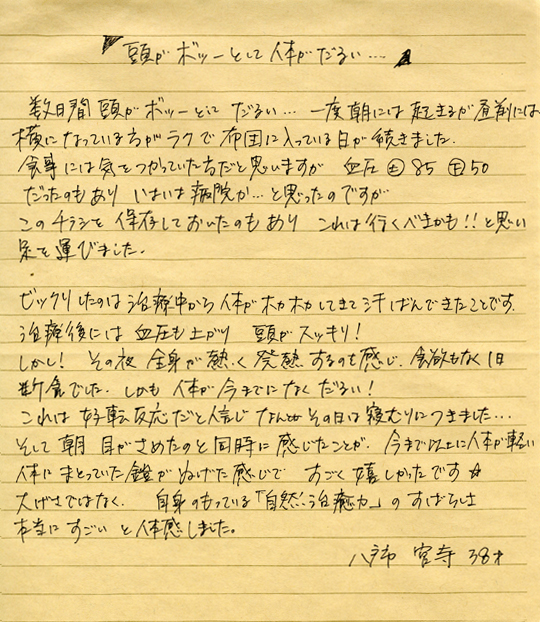 頭がボッーとして体がだるい…
数日間 頭がボッーとして だるい… 一度朝には起きるが昼前には
横になっている方がラクで布団に入っている日が続きました.
食事には気をつかっていた方だと思いますが 血圧㊤85 ㊦50
だったのもあり いよいよ病院か…と思ったのですが
このチラシを保存しておいたのもあり これは行くべきかも!!と思い
足を運びました.
ビックリしたのは治療中から体がホカホカしてきて汗ばんできたことです.
治療後には 血圧も上がり 頭がスッキリ!
しかし! その夜 全身が熱く 発熱するのを感じ、食欲もなく1日
断食でした. しかも 体が今までになくだるい!
これは好転反応だと信じ なんとかその日は寝むりにつきました…
そして朝 目がさめたのと同時に感じたことが、今まで以上に体が軽い
体にまとっていた鎧がぬげた感じで すごく嬉しかったです☆
大げさではなく. 自身のもっている「自然治癒力」のすばらしさ
本当にすごい と体感しました。
八戸市 宮寺 38才